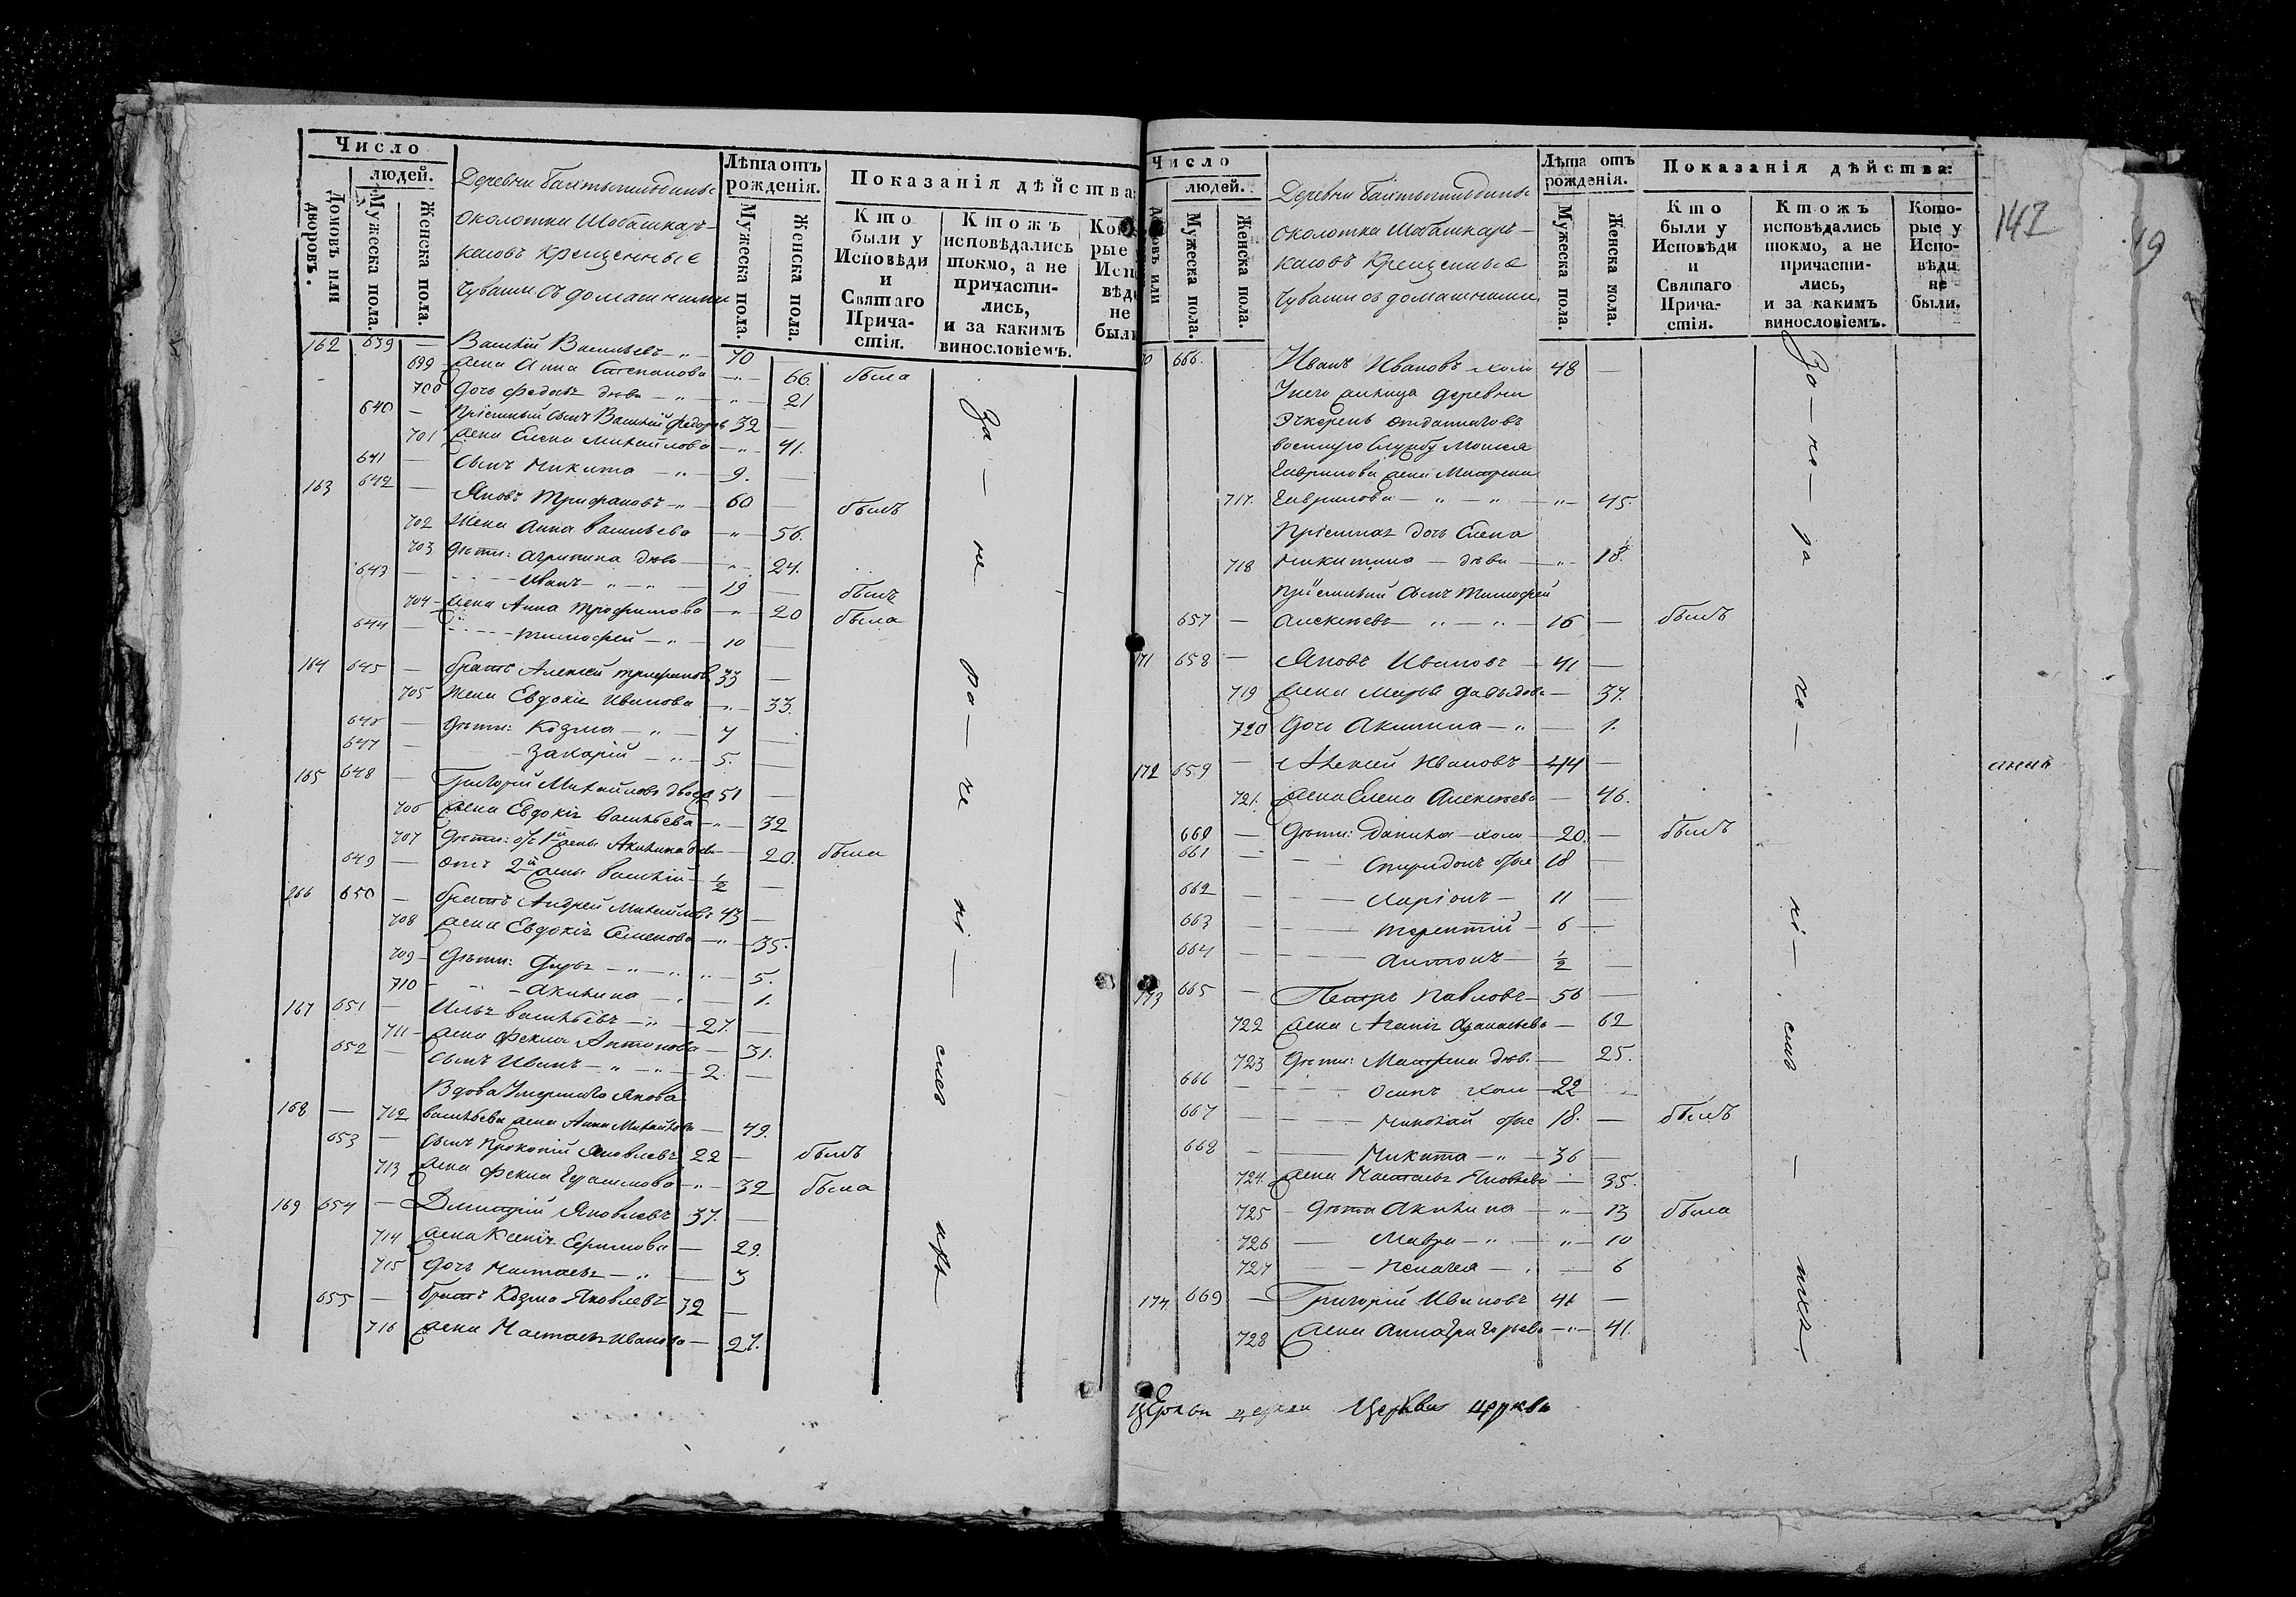 Число
людей.
Домовъ или дворовъ.
Мужеска пола.
Женска пола.
Деревни
околотка Шобашкар-
касовъ Крещенные
Чуваши съ домашними
Лѣта отъ рожденія.
Мужеска пола.
Женска пола.
Показанія дѣйства
Кто были у Исповѣди и Святаго Прича-стія.
Ктожъ исповѣдались токмо, а не причасти-лись, и за какимъ винословіемъ.
162 639 — Василій Васильевъ — 70
699 жена Анна Степанова — 66. была
700 дочь Федосья дѣва — 21
640 — Пріемный сынъ Василій Федоровъ 32 —
701 жена Елена Михайлова — 41.
641 — сынъ Никита — 9. —
163 642 — Яковъ Трифановъ — 60 — былъ
702 Жена Анна Васильева — 56.
703 дѣти: Агрипина дѣва — 24.
643 — Иванъ — 19 — былъ
704 жена Анна Трофимова — 20 была
644 — Тимофей — 10 —
164 645 — братъ Алексей Трифановъ 33 —
705 Жена Евдокія Иванова — 33.
646 — дѣти: Козма — 7 —
647 — Захарій — 5. —
165 648 — Григорій Михайловъ 51 —
706 жена Евдокія Васильева — 32
707 дѣти: отъ 1й жены Акилина дѣв — 20. была
649 — отъ 2й жены Василій — ½ —
166 650 — братъ Андрей Михайловъ 43 —
708 жена Евдокія Семенова — 35.
709 — дѣти: Дарья — 5.
710 — Акилина — 1.
167 651 — Илья Васильевъ — 27. —
711 — жена Фекла Антонова — 31.
652 — сынъ Иванъ — 2. —
Вдова Умершаго Якова
168 — 712 Васильева жена Анна Михайлова — 49.
653 — сынъ Прокопій Яковлевъ 22 — былъ
713 жена Фекла Герасимова — 32 была
169 654 — Дмитрій Яковлевъ 37. —
714 жена Ксенія Ефимова — 29.
715 дочь Настасья — 3
655 — братъ Козма Яковлевъ 32 —
716 жена Настасья Иванова — 27.
За — не — ра — че — ні — емъ
Число
людей.
Мужеска пола.
Женска пола.
Деревни
околотка Шобашкар-
касовъ Крещенные
Чуваши съ домашними
Лѣта отъ рожденія.
Мужеска пола.
Женска пола.
Показанія дѣйства:
Кто были у Исповѣди и Святаго Прича-стія.
Ктожъ исповѣдались токмо, а не причасти-лись, и за какимъ винословіемъ.
Кото-рые у Испо-вѣди не были.
147
19
666. Иванъ Ивановъ холо 48 —
У него деревни
военную службу Моисея
Гаврилова жена Матрена
717. Гаврилова — 45.
Пріемная дочь Елена
718 Никитина — дѣва — 18.
Пріемный сынъ Тимофей
657 — Алексѣевъ — 16 — былъ
171 658 — Яковъ Ивановъ — 41 —
719 жена Марья Давыдова — 37.
720 дочь Акилина — 1.
172 659 — Алексей Ивановъ — 44 —
721. жена Елена Алексѣева — 46.
660 — дѣти: Данила — холо — 20. — былъ
661 — Спиридонъ 18 —
662 — Ларіонъ — 11 —
663 — Терентій — 6 —
664 — Антонъ — ½ —
173 665 — Петръ Павловъ — 56 —
722 жена Агапія Афанасьева — 62
723 дѣти: Матрена дѣв. — 25.
666 — Осипъ холо — 22
667 — Николай 18. — былъ
668 — Никита — 36 —
724. жена Настасья Яковлева — 35.
725 — дѣти Акилина — 13 была
726 — Мавра — 10
727 — Пелагея — 6
174 669 — Григорій Ивановъ 41 —
728 жена Анна Григорьева — 41.
За — не — ра — че — ні — емъ —
Церкви церкви Церкви церкви